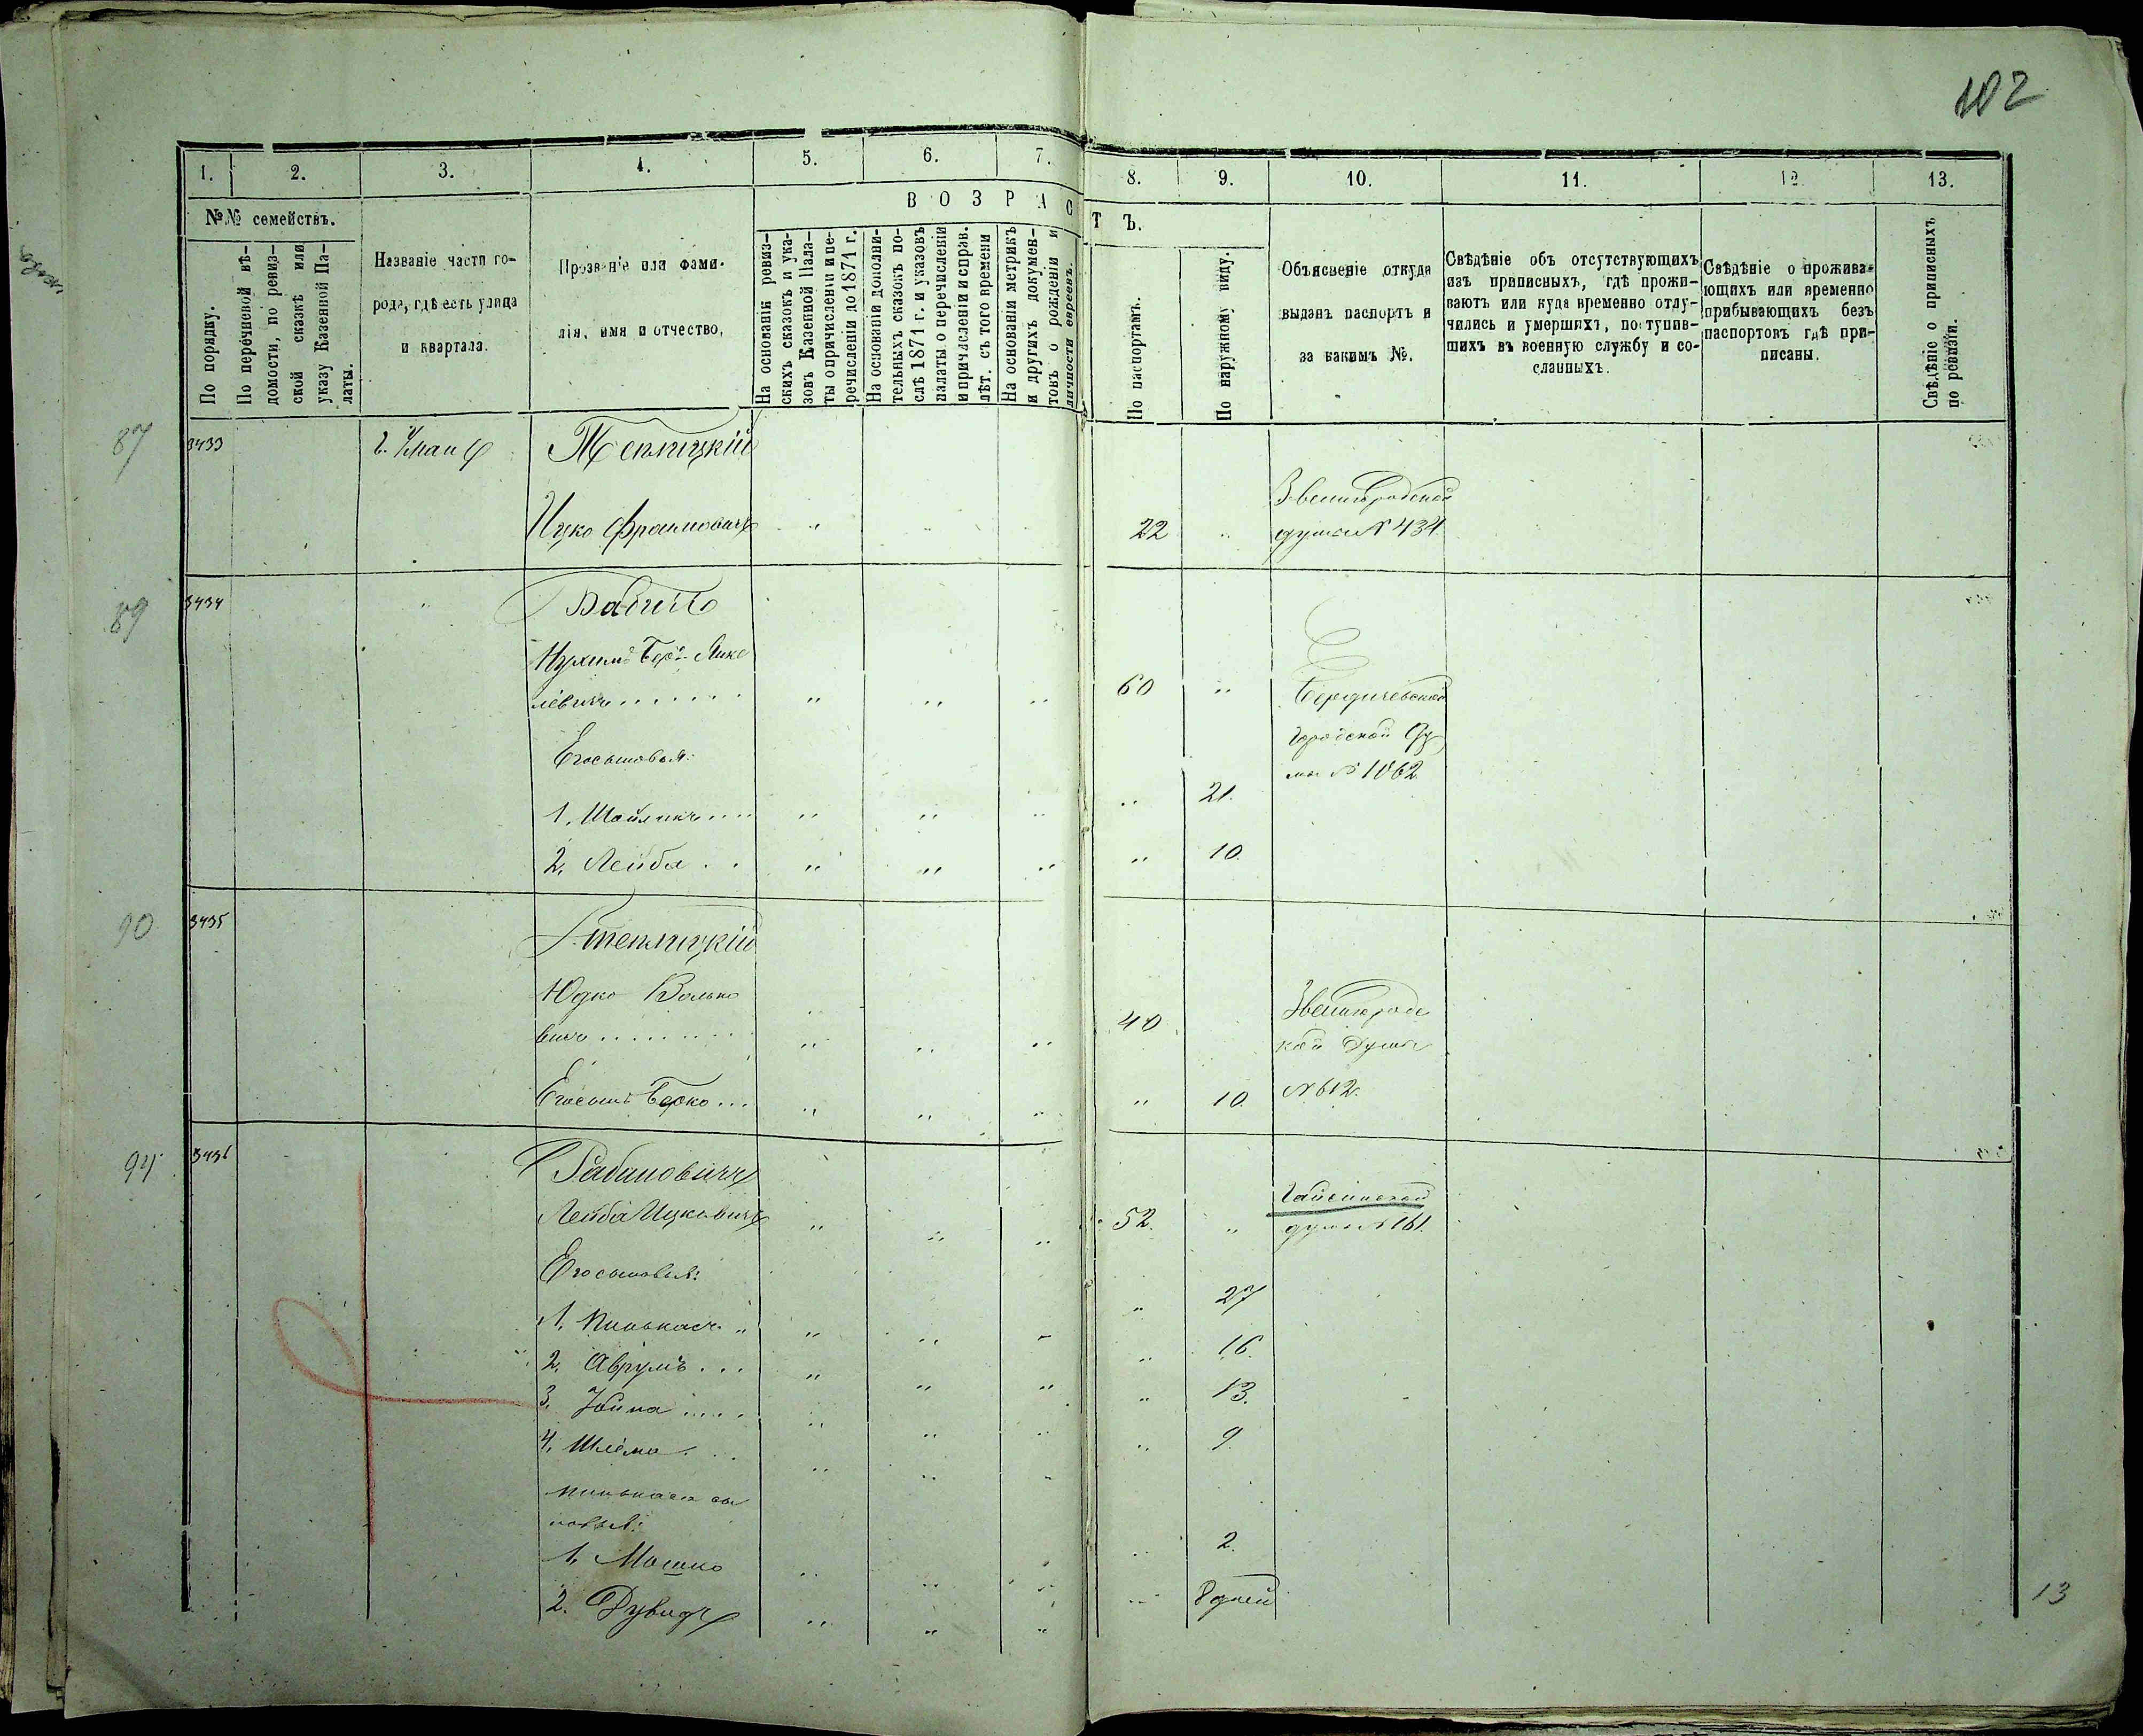 102
1. 2. 3. 4. 5. 6. 7. 8. 9. 10. 11. 12. 13.
№№ семействъ.
По порядку.
По перечневой вѣ-
домости, по ревиз-
ской сказкѣ или
указу Казенной Па-
латы.
Названіе части го-
рода, гдѣ есть улица
и квартала.
Прозваніе или фами-
лія, имя и отчество.
ВОЗРАСТЪ.
На основаніи ревиз-
скихъ сказокъ и ука-
зовъ Казенной Пала-
ты о причисленіи и пе-
речисленіи до 1871 г.
На основаніи дополни-
тельныхъ сказокъ по-
слѣ 1871 г. и указовъ
палаты о перечисленіи
и причисленіи и справ.
лѣт. съ того времени
На основаніи метрикъ
и другихъ докумен-
товъ о рожденіи и
личности евреевъ.
По паспортамъ.
По наружному виду.
Объясненіе откуда
выданъ паспортъ и
за какимъ №.
Свѣдѣніе объ отсутствующихъ
изъ приписныхъ, гдѣ прожи-
ваютъ или куда временно отлу-
чились и умершихъ, поступив-
шихъ въ военную службу и со-
сланныхъ.
Свѣдѣніе о прожива-
ющихъ или временно
прибывающихъ безъ
паспортовъ гдѣ при-
писаны.
Свѣдѣніе о приписныхъ
по ревизіи.
87 3433 г. Умань Теплицкій
Звенигородской
Ицко Фраимовичъ 22 думы № 434
89 3434
Нухимъ Беръ Анке
левичъ 60 Бердичевской
Городской Ду
Его сыновья: мы № 1062
1. Шайликъ 21.
2. Лейба 10.
90 3435 Теплицкій
Юдко Волько Звенигородс
вичъ 40 кой Думы
Его сынъ Берко 10. № 612.
94 3436 Рабиновичъ
Гайсинской
Лейба Ицковичъ 52. думы № 161.
Его сыновья:
1. Пинькасъ 27
2. Аврумъ 16.
3. Іойна 13.
4. Шлема 9.
Пинькаса сы
новья:
1. Мошко 2.
2. Дувидъ 8 дней
13